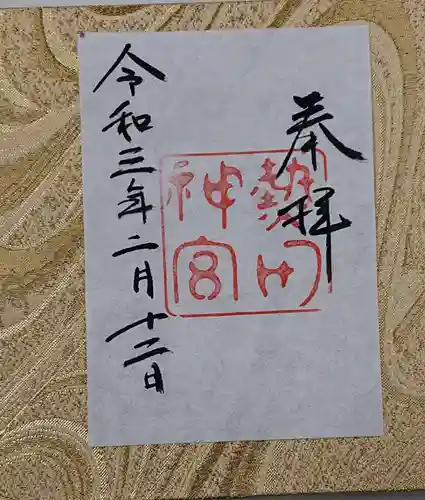 奉拝
熱田
神宮
令和三年二月十二日